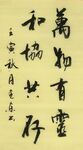 萬物有靈
和協共存
壬寅秋月